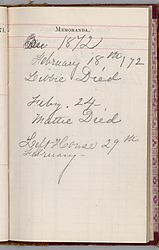 MEMORANDA.
1872
February 18th, 72
Debbie Died
Feby. 24.
Mattie Died
Left House 29th
February